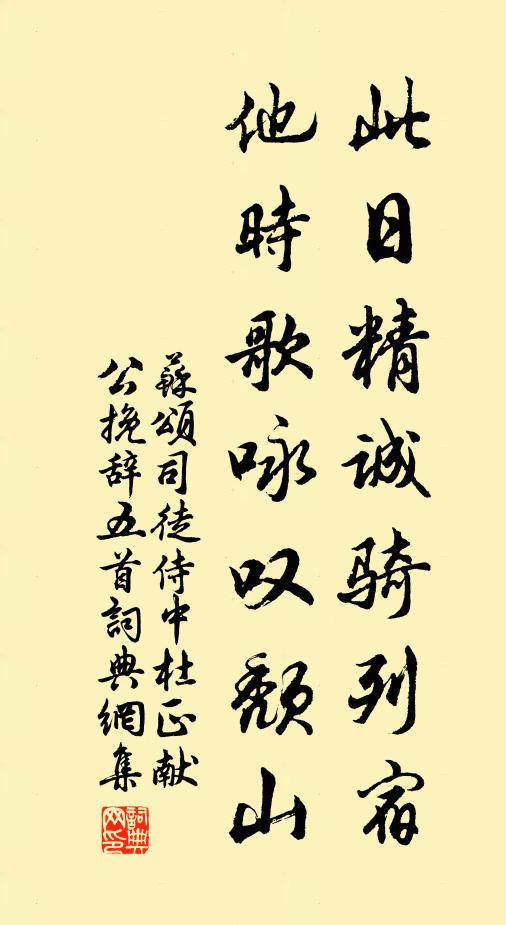 此日精诚骑列宿
他時歌咏叹颓山
蘇頌司徒侍中杜正献
公挽辞五首詞典網集
詞典網印